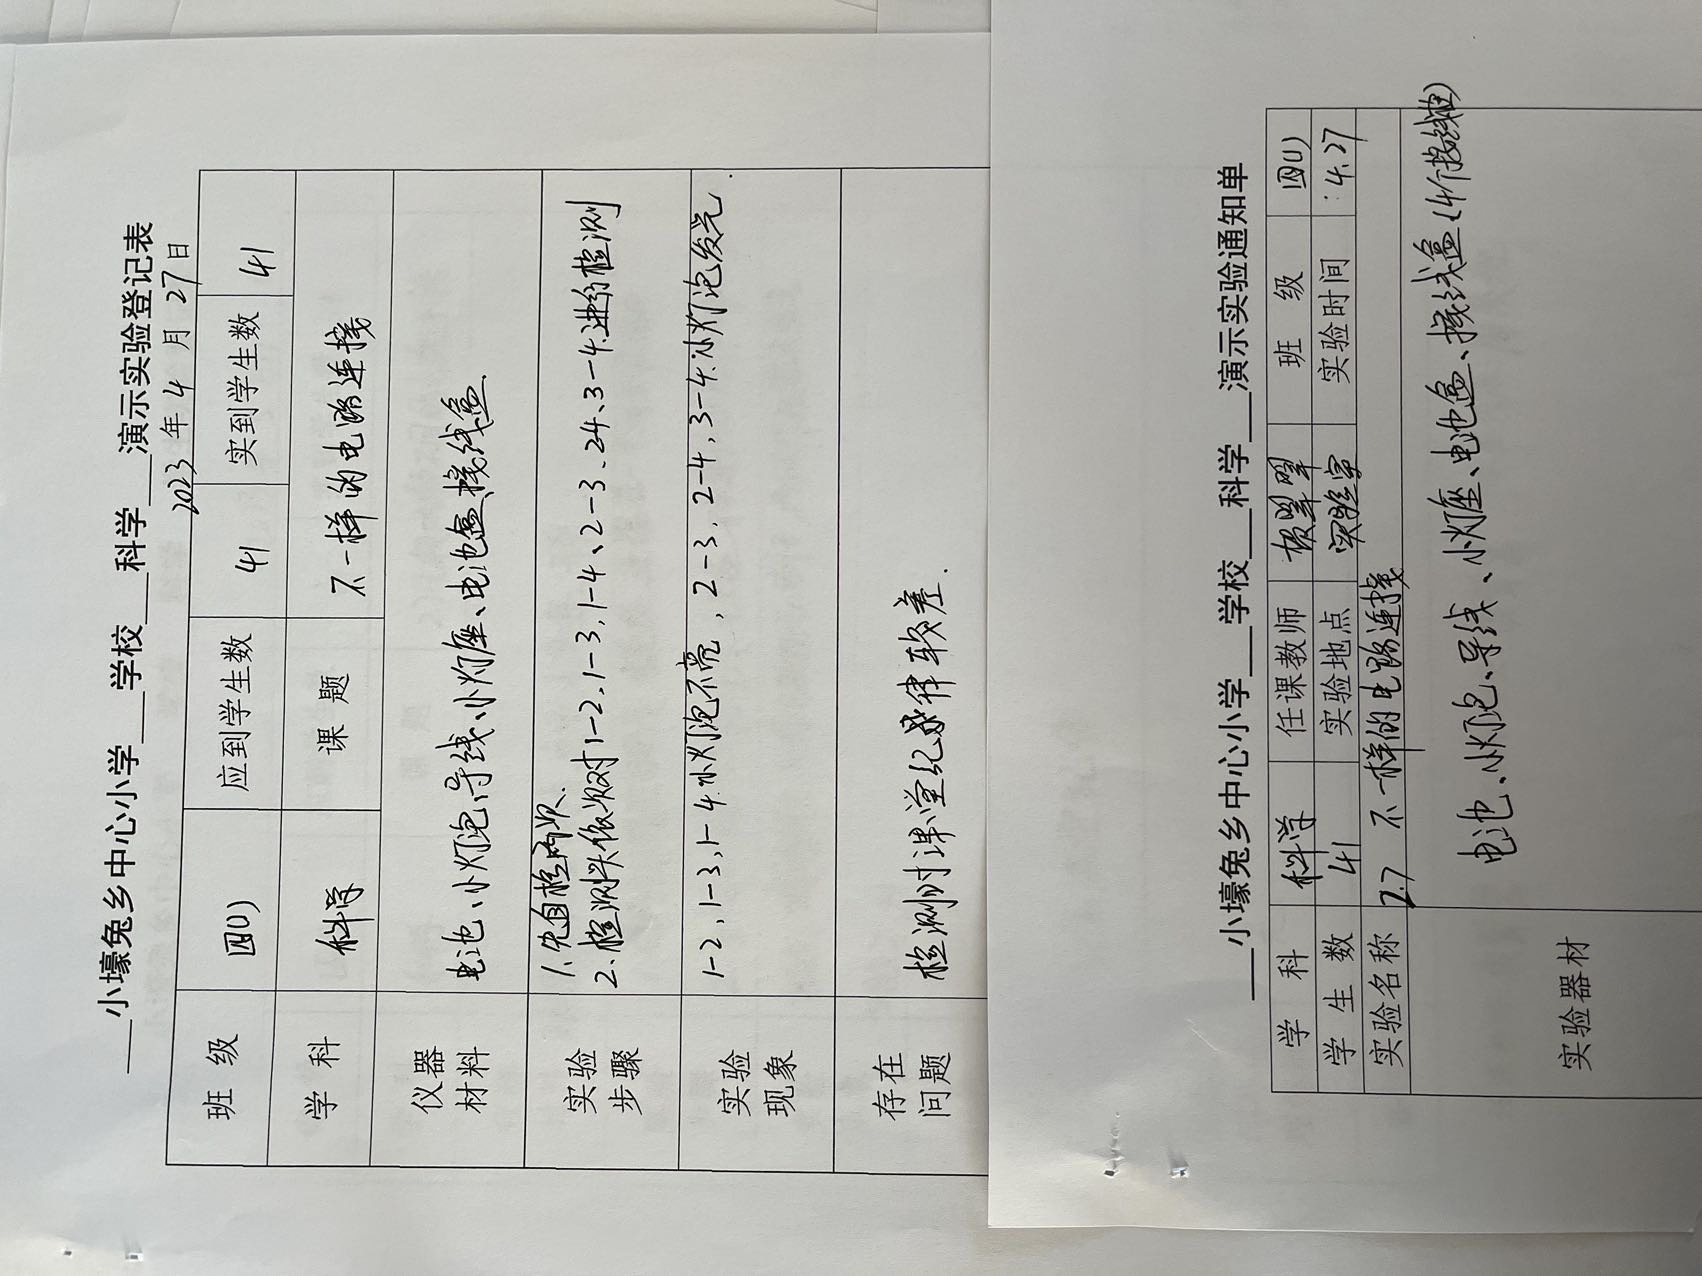 小壕兔乡中心小学 学校 科学 演示实验登记表
2023年4月27日
班级 四(1) 应到学生数 41 实到学生数 41
学科 科学 课题 不一样的电路连接
仪器材料 电池、小灯泡、导线、小灯座、电池盒、接线盒.
实验步骤 1.先自检两次.
2.检测头依次对1-2、1-3、1-4、2-3、24、3-4.进行检测
实验现象 1-2,1-3,1-4.小灯泡不亮,2-3,2-4,3-4.小灯泡发光.
存在问题 检测时课堂纪律较差.
小壕兔乡中心小学 学校 科学 演示实验通知单
学科 科学 任课教师 翠翠 班级 四(1)
学生数 41 实验地点 实验室 实验时间 4.27
实验名称 2.7 不一样的电路连接
实验器材 电池、小灯泡、导线、小灯座、电池盒、接线盒(4个接线柱)